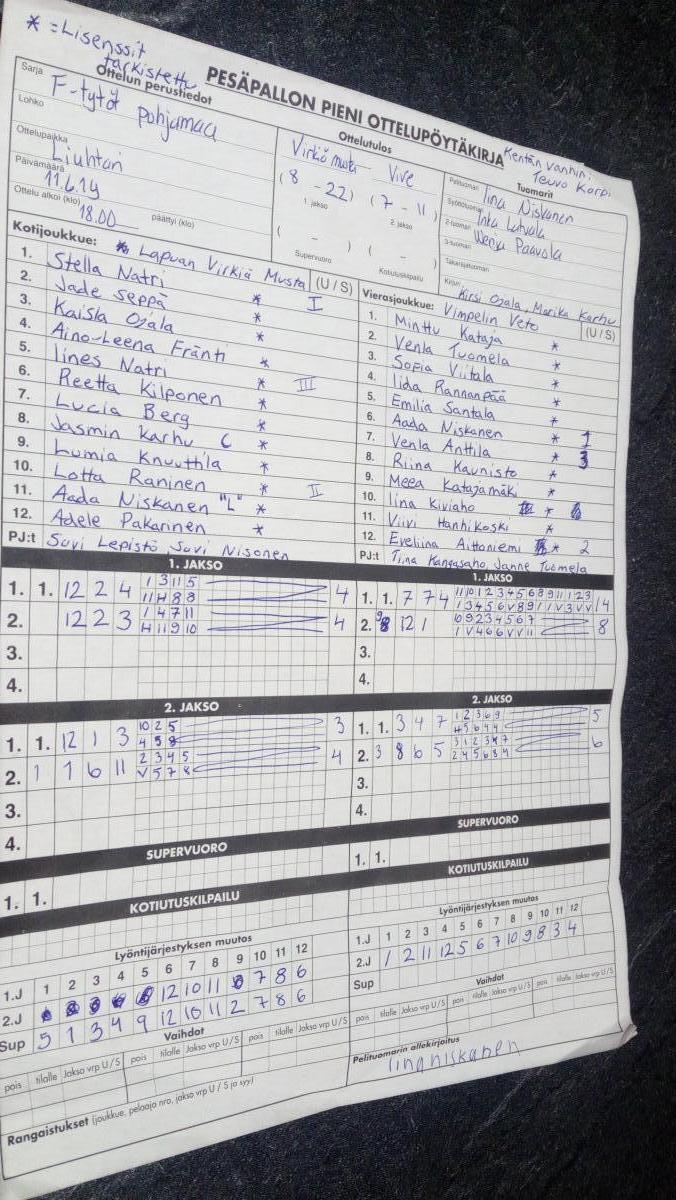 * = Lisenssit
tarkistettu
PESÄPALLON PIENI OTTELUPÖYTÄKIRJA
Kentän vanhin:
Teuvo Korpi
Ottelun perustiedot
Sarja F-tytöt pohjamaa
Lohko
Ottelupaikka Liuhtari
Päivämäärä 11.6.14
Ottelu alkoi (klo) 18.00 päättyi (klo)
Ottelutulos
Virkiä musta - Vive
(8 - 22) (7 - 11)
1. jakso 2. jakso
( - ) ( - )
Supervuoro Kotiutuskilpailu
Tuomarit
Pelituomari Iina Niskanen
Syöttötuomari Inka Latvala
2-tuomari Paavola
3-tuomari
Takarajatuomari
Kirjuri Kirsi Ojala, Marika Karhu
Kotijoukkue: Lapuan Virkiä Musta (U / S)
1. Stella Natri * I
2. Jade Seppä *
3. Kaisla Ojala *
4. Aino-Leena Fränti *
5. Iines Natri * III
6. Reetta Kilponen *
7. Lucia Berg *
8. Jasmin Karhu C *
9. Lumia Knuuttila *
10. Lotta Raninen * II
11. Aada Niskanen "L" *
12. Adele Pakarinen *
PJ:t Suvi Lepistö, Suvi Nisonen
Vierasjoukkue: Vimpelin Veto (U / S)
1. Minttu Kataja *
2. Venla Tuomela *
3. Sofia Viitala *
4. Iida Rannanpää *
5. Emilia Santala *
6. Aada Niskanen *
7. Venla Anttila * 1
8. Riina Kaunisto * 3
9. Meea Katajamäki *
10. Iina Kiviaho *
11. Viivi Hanhikoski *
12. Eveliina Aittoniemi * 2
PJ:t Tiina Kangasaho, Janne Tuomela
1. JAKSO
1. 1. 12 2 4 1 3 11 5 4
11 H 8 8
2. 12 2 3 1 4 7 11 4
H 11 9 10
3.
4.
1. JAKSO
1. 1. 7 7 4 11 10 1 2 3 4 5 6 8 9 11 1 2 3 14
1 3 4 5 6 V 8 9 1 1 V 3 V V
2. 12 1 6 9 2 3 4 5 6 7 8
1 V 4 6 6 V V 11
3.
4.
2. JAKSO
1. 1. 12 1 3 10 2 5 3
4 5 8
2. 1 1 6 11 2 3 4 5 4
V 5 7 8
3.
4.
2. JAKSO
1. 1. 3 4 7 1 2 3 6 9 5
H 5 6 4 4
2. 3 8 6 5 3 1 2 3 4 7 6
2 4 5 6 3 4
3.
4.
SUPERVUORO
1. 1.
KOTIUTUSKILPAILU
SUPERVUORO
1. 1.
KOTIUTUSKILPAILU
Lyöntijärjestyksen muutos
1 2 3 4 5 6 7 8 9 10 11 12
1.J 12 10 11 7 8 6
2.J 5 1 3 4 9 12 10 11 2 7 8 6
Sup
Vaihdot
pois tilalle Jakso vrp U / S pois tilalle Jakso vrp U / S pois tilalle Jakso vrp U / S
Lyöntijärjestyksen muutos
1 2 3 4 5 6 7 8 9 10 11 12
1.J
2.J 1 2 11 12 5 6 7 10 9 8 3 4
Sup
Vaihdot
pois tilalle Jakso vrp U / S pois tilalle Jakso vrp U / S pois tilalle Jakso vrp U / S
Pelituomarin allekirjoitus
Iina Niskanen
Rangaistukset (joukkue, pelaaja nro, jakso vrp U / S ja syy)